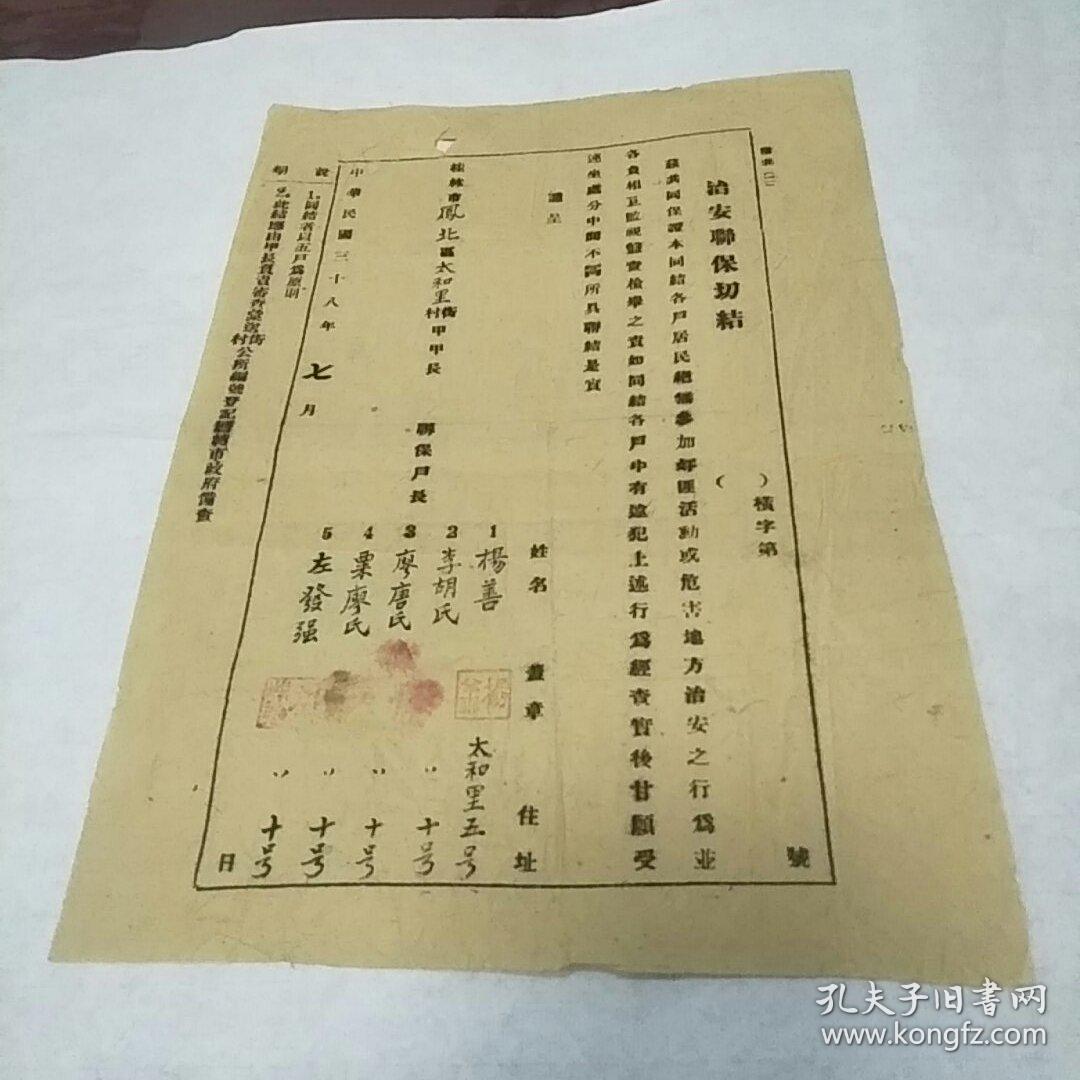 治安聯保切結
（　）橫字第　號
茲共同保證本同結各戶居民絕無參加奸匪活動或危害地方治安之行為並
各負相互監視暨責檢舉之責如同結各戶中有違犯上述行為經查實後甘願受
連坐處分中間不虛所具聯結是實
謹呈
桂林市鳳北區太和里街村甲甲長
聯保戶長
姓名 蓋章 住址
1 楊善 太和里五号
2 李胡氏 〃 十号
3 廖唐氏 〃 十号
4 粟廖氏 〃 十号
5 左發强 〃 十号
中華民國三十八年七月 日
說明
1.同結者以五戶為原則
2.此結應由甲長負責審查彙送街村公所編號登記轉市政府備查
孔夫子旧书网
www.kongfz.com